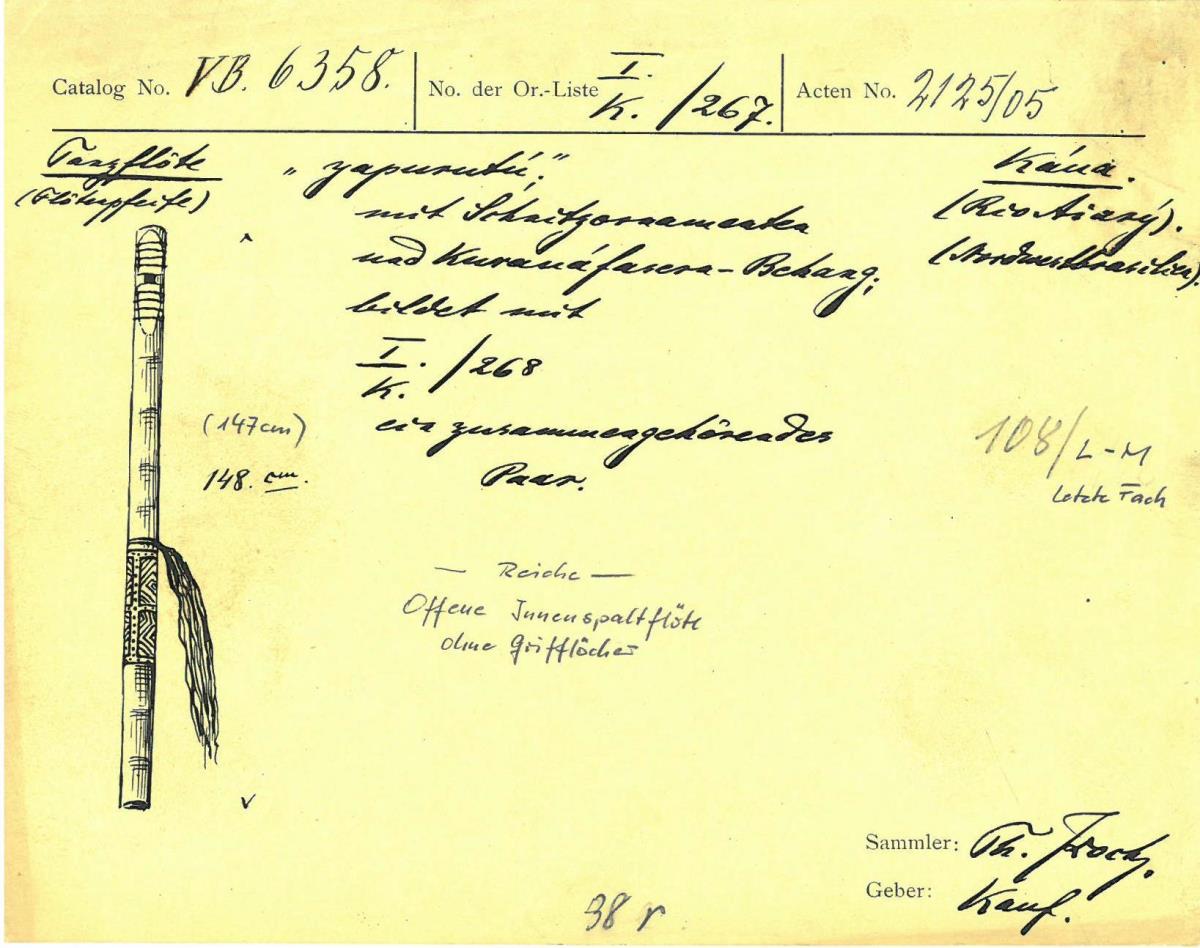 Catalog No. VB. 6358. No. der Or.-Liste I./K. /267. Acten No. 2125/05
Tanzflöte „yapurutú“: Káua.
(Flötenpfeife) mit Schnitzornamenten (Rio Aiarý).
und Kuranáfasern-Behang; (Nordwestbrasilien).
bildet mit
I./K. /268
(147cm) ein zusammengehörendes
148. cm. Paar.
108/L-M
letzte Fach
— Reiche —
Offene Innenspaltflöte
ohne Grifflöcher
Sammler: Th. Koch.
Geber: Kauf.
38 r